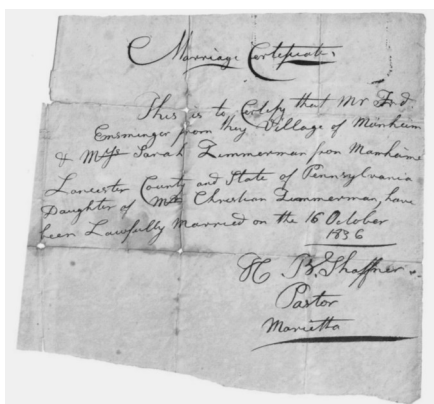 Marriage Certificate
This is to Certify that Mr Frd
Ensminger from they Village of Manheim
& Sarah Zimmerman from Manheim
Lancester County and State of Pennsylvania
Daughter of Christian Zimmerman, have
been Lawfully Married on the 16 October
1836
H. B. Shaffner
Pastor
Marietta